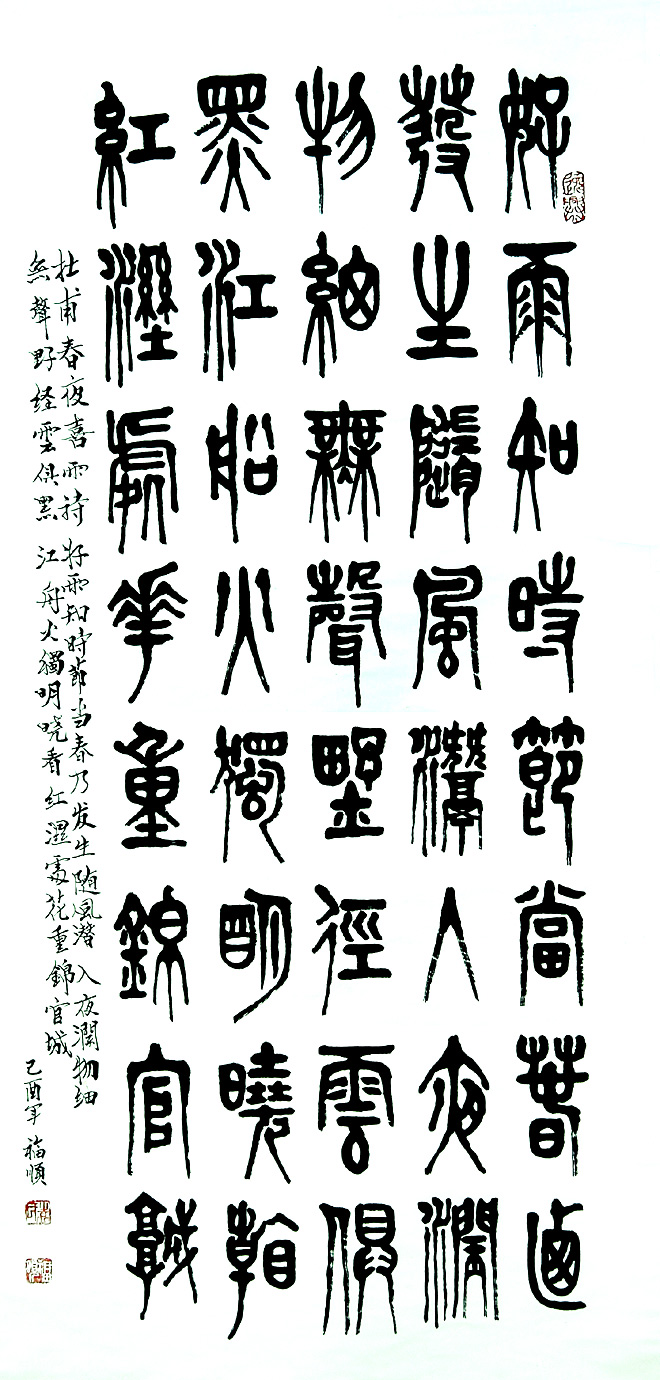 好雨知時節當春乃
發生隨風潛入夜潤
物細無聲野徑雲俱
黑江船火獨明曉看
紅溼處華重錦官城
杜甫春夜喜雨詩 好雨知時節当春乃发生随風潛入夜潤物细
無聲野经雲俱黑江舟火獨明晓看红濕處花重錦官城
己酉年 福順